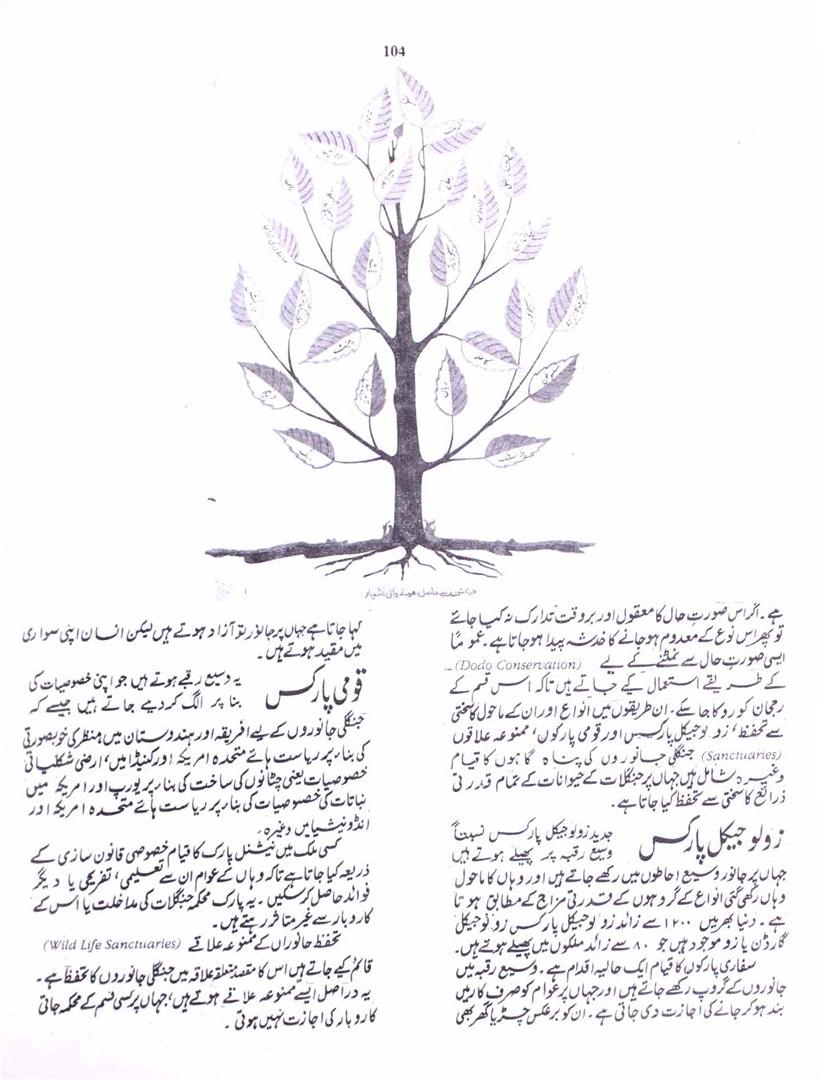 104
درختوں سے حاصل ہونے والی اشیاء
ہے۔ اگر اس صورت حال کا معقول اور بروقت تدارک نہ کیا جائے
تو پھر اس نوع کے معدوم ہوجانے کا خدشہ پیدا ہوجاتا ہے۔ عموماً
ایسی صورت حال سے نمٹنے کے لیے (Dodo Conservation)
کے طریقے استعمال کیے جاتے ہیں تاکہ اس قسم کے
رجحان کو روکا جاسکے۔ ان طریقوں میں انواع اور ان کے ماحول کا سختی
سے تحفظ، زولوجیکل پارکس اور قومی پارکوں، ممنوعہ علاقوں
(Sanctuaries) جنگلی جانوروں کی پناہ گاہوں کا قیام
وغیرہ شامل ہیں جہاں پر جنگلات کے حیوانات کے تمام قدرتی
ذرائع کا سختی سے تحفظ کیا جاتا ہے۔
زولوجیکل پارکس
جدید زولوجیکل پارکس نسبتاً
وسیع رقبہ پر پھیلے ہوتے ہیں
جہاں پر جانور وسیع احاطوں میں رکھے جاتے ہیں اور وہاں کا ماحول
وہاں رکھی گئی انواع کے گروہوں کے قدرتی مزاج کے مطابق ہوتا
ہے۔ دنیا بھر میں ۱۲۰۰ سے زائد زولوجیکل پارکس زولوجیکل
گارڈن یا زو موجود ہیں جو ۸۰ سے زائد ملکوں میں پھیلے ہوتے ہیں۔
سفاری پارکوں کا قیام ایک حالیہ اقدام ہے۔ وسیع رقبہ میں
جانوروں کے گروپ رکھے جاتے ہیں اور جہاں پر عوام کو صرف کار میں
بند ہو کر جانے کی اجازت دی جاتی ہے۔ ان کو برعکس چڑیا گھر بھی
کہا جاتا ہے جہاں پر جانور تو آزاد ہوتے ہیں لیکن انسان اپنی سواری
میں مقید ہوتے ہیں۔
قومی پارکس
یہ وسیع رقبے ہوتے ہیں جو اپنی خصوصیات کی
بنا پر الگ کردیے جاتے ہیں جیسے کہ
جنگلی جانوروں کے لیے افریقہ اور ہندوستان میں منظری خوبصورتی
کی بناء پر ریاست ہائے متحدہ امریکہ اور کنیڈا میں، ارضی شکلیاتی
خصوصیات یعنی چٹانوں کی ساخت کی بناء پر یورپ اور امریکہ میں
نباتات کی خصوصیات کی بناء پر ریاست ہائے متحدہ امریکہ اور
انڈونیشیا میں وغیرہ۔
کسی ملک میں نیشنل پارک کا قیام خصوصی قانون سازی کے
ذریعہ کیا جاتا ہے تاکہ وہاں کے عوام ان سے تعلیمی، تفریحی یا دیگر
فوائد حاصل کرسکیں۔ یہ پارک محکمہ جنگلات کی مداخلت یا اس کے
کاروبار سے غیر متاثر رہتے ہیں۔
تحفظ جانوراں کے ممنوعہ علاقے (Wild Life Sanctuaries)
قائم کیے جاتے ہیں اس کا مقصد متعلقہ علاقہ میں جنگلی جانوروں کا تحفظ ہے۔
یہ دراصل ایسے ممنوعہ علاقے ہوتے ہیں، جہاں پر کسی قسم کے محکمہ جاتی
کاروبار کی اجازت نہیں ہوتی۔